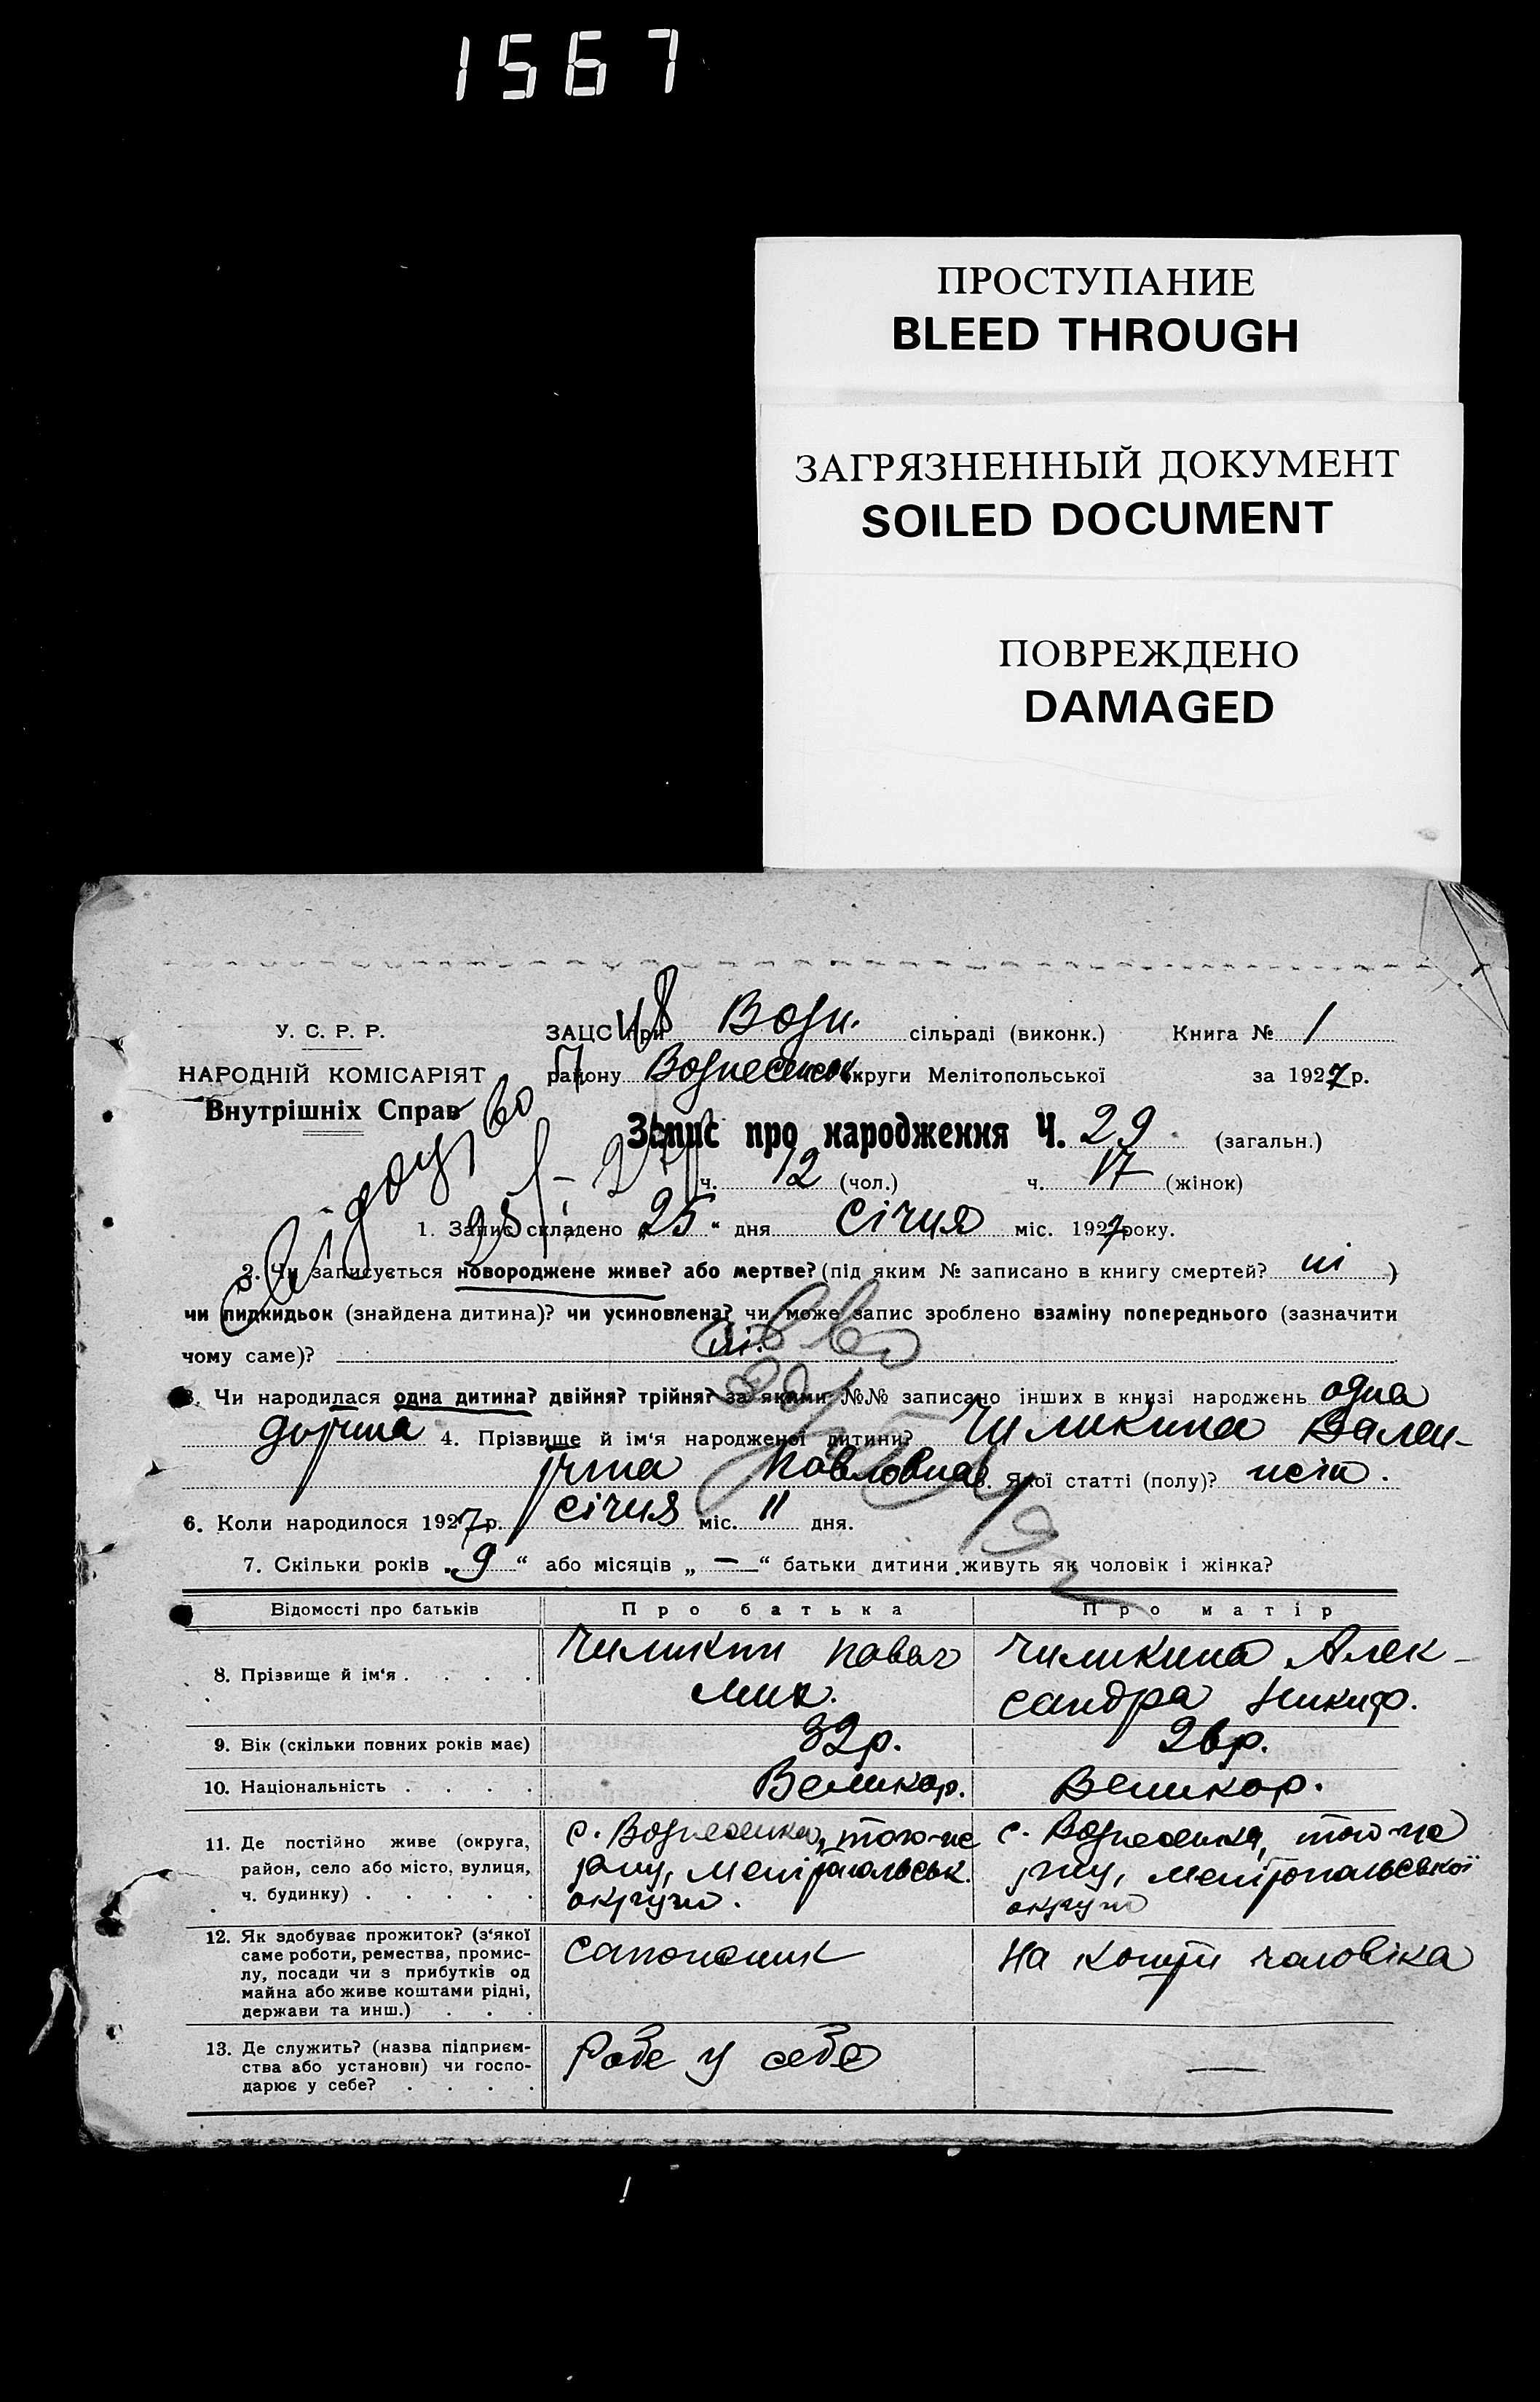 1567
ПРОСТУПАНИЕ
BLEED THROUGH
ЗАГРЯЗНЕННЫЙ ДОКУМЕНТ
SOILED DOCUMENT
ПОВРЕЖДЕНО
DAMAGED
У. С. Р. Р.
НАРОДНІЙ КОМІСАРІЯТ
Внутрішніх Справ
ЗАЦС при Возн. сільраді (виконк.) Книга № 1
району Вознесенськ. округи Мелітопольської за 1927 р.
Запис про народження Ч. 29 (загальн.)
ч. 12 (чол.) ч. 17 (жінок)
1. Запис складено „25“ дня Січня міс. 1927 року.
2. Чи записується новороджене живе? або мертве? (під яким № записано в книгу смертей? ні )
чи пидкидьок (знайдена дитина)? чи усиновлена? чи може запис зроблено взаміну попереднього (зазначити
чому саме)? ні.
3. Чи народилася одна дитина? двійня? трійня? за якими №№ записано інших в книзі народжень одна
дитина 4. Прізвище й ім'я народженої дитини? Чиликина Вален-
тина Павловна 5. Якої статті (полу)? жін.
6. Коли народилося 1927 р. січня міс. 11 дня.
7. Скільки років „9“ або місяців „—“ батьки дитини живуть як чоловік і жінка?
Відомості про батьків Про батька Про матір
8. Прізвище й ім'я . . . . Чиликин Павел Чиликина Алек-
Мих. сандра Никиф.
9. Вік (скільки повних років має) 32 р. 26 р.
10. Національність . . . . Великор. Великор.
11. Де постійно живе (округа, с. Вознесенка, того-же с. Вознесенка, того-же
район, село або місто, вулиця, р-ну, Мелітопольськ. р-ну, Мелітопольської
ч. будинку) . . . . . округи. округи
12. Як здобуває прожиток? (з'якої Сапожник На кошти чоловіка
саме роботи, ремества, промис-
лу, посади чи з прибутків од
майна або живе коштами рідні,
держави та инш.) . . .
13. Де служить? (назва підприєм- Робе у себе —
ства або установи) чи госпо-
дарює у себе? . . . .